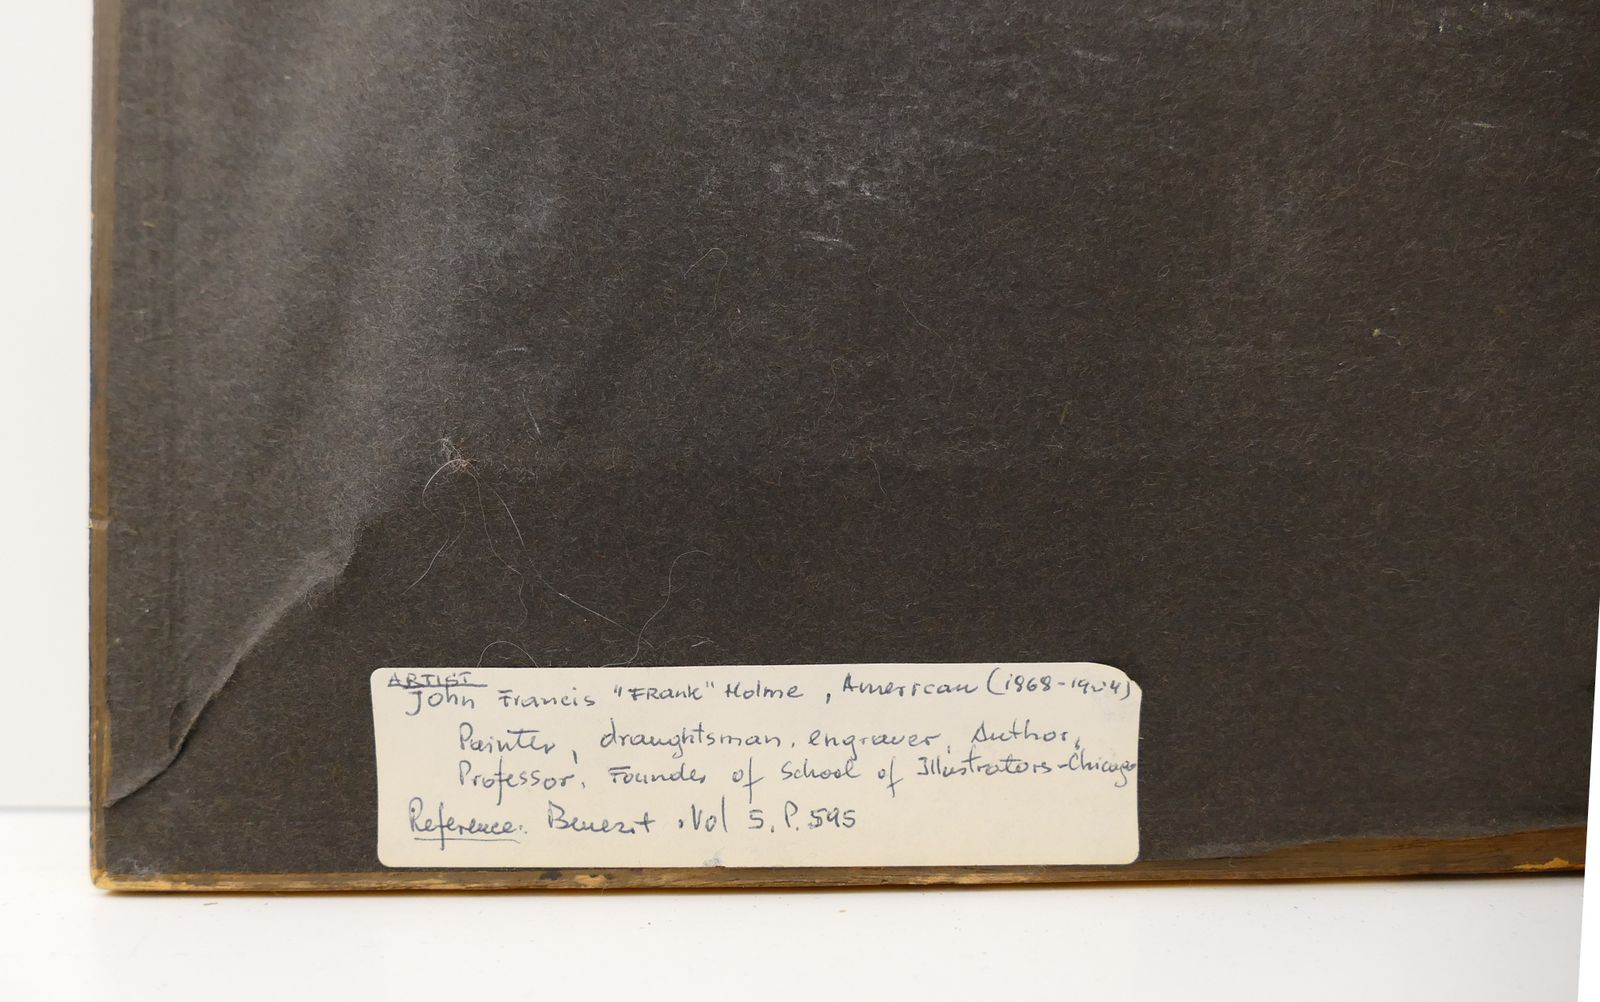 ARTIST
John Francis "FRank" Holme, American (1868-1904)
Painter, draughtsman, engraver, Author,
Professor, Founder of School of Illustrators-Chicago
Reference: Benezit. Vol 5, P. 595